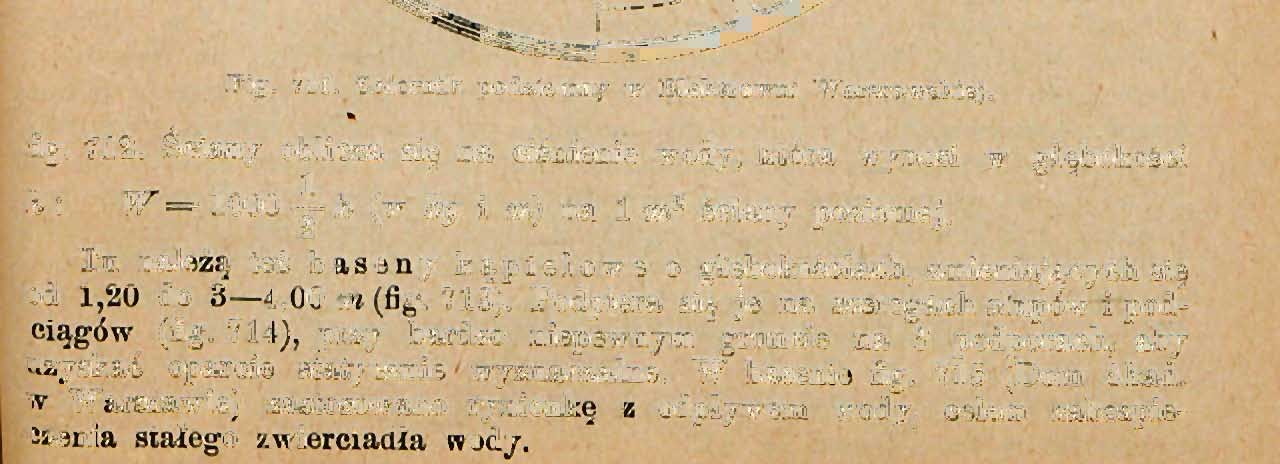 Fig. 711. Zbiornik podziemny w Elektrowni Warszawskiej.
fig. 712. Ściany oblicza się na ciśnienie wody, które wynosi w głębokości
h: W = 1000 h (w kg i m) na 1 m² ściany poziomej.
Tu należą też baseny kąpielowe o głębokościach, zmieniających się
od 1,20 do 3—4,00 m (fig. 713). Podpiera się je na szeregach słupów i pod-
ciągów (fig. 714), przy bardzo niepewnym gruncie na 3 podporach, aby
uzyskać oparcie statycznie wyznaczalne. W basenie fig. 715 (Dom Akad.
w Warszawie) zastosowano rynienkę z odpływem wody, celem zabezpie-
czenia stałego zwierciadła wody.